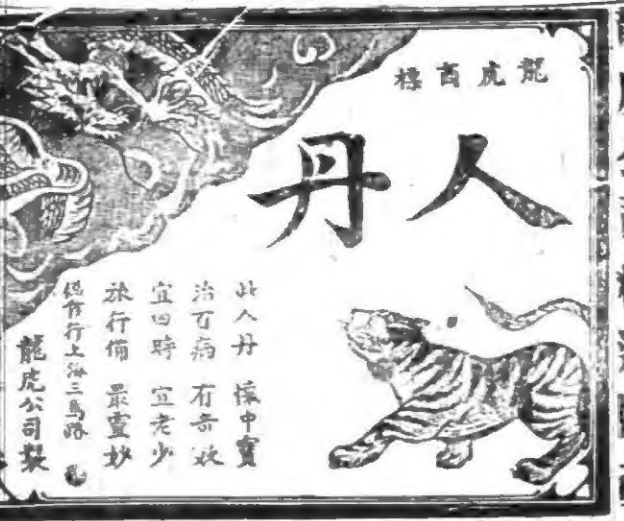 龍虎商標
人丹
此人丹 懷中寶
治百病 有奇效
宜四時 宜老少
旅行備 最靈妙
上海三馬路
龍虎公司製